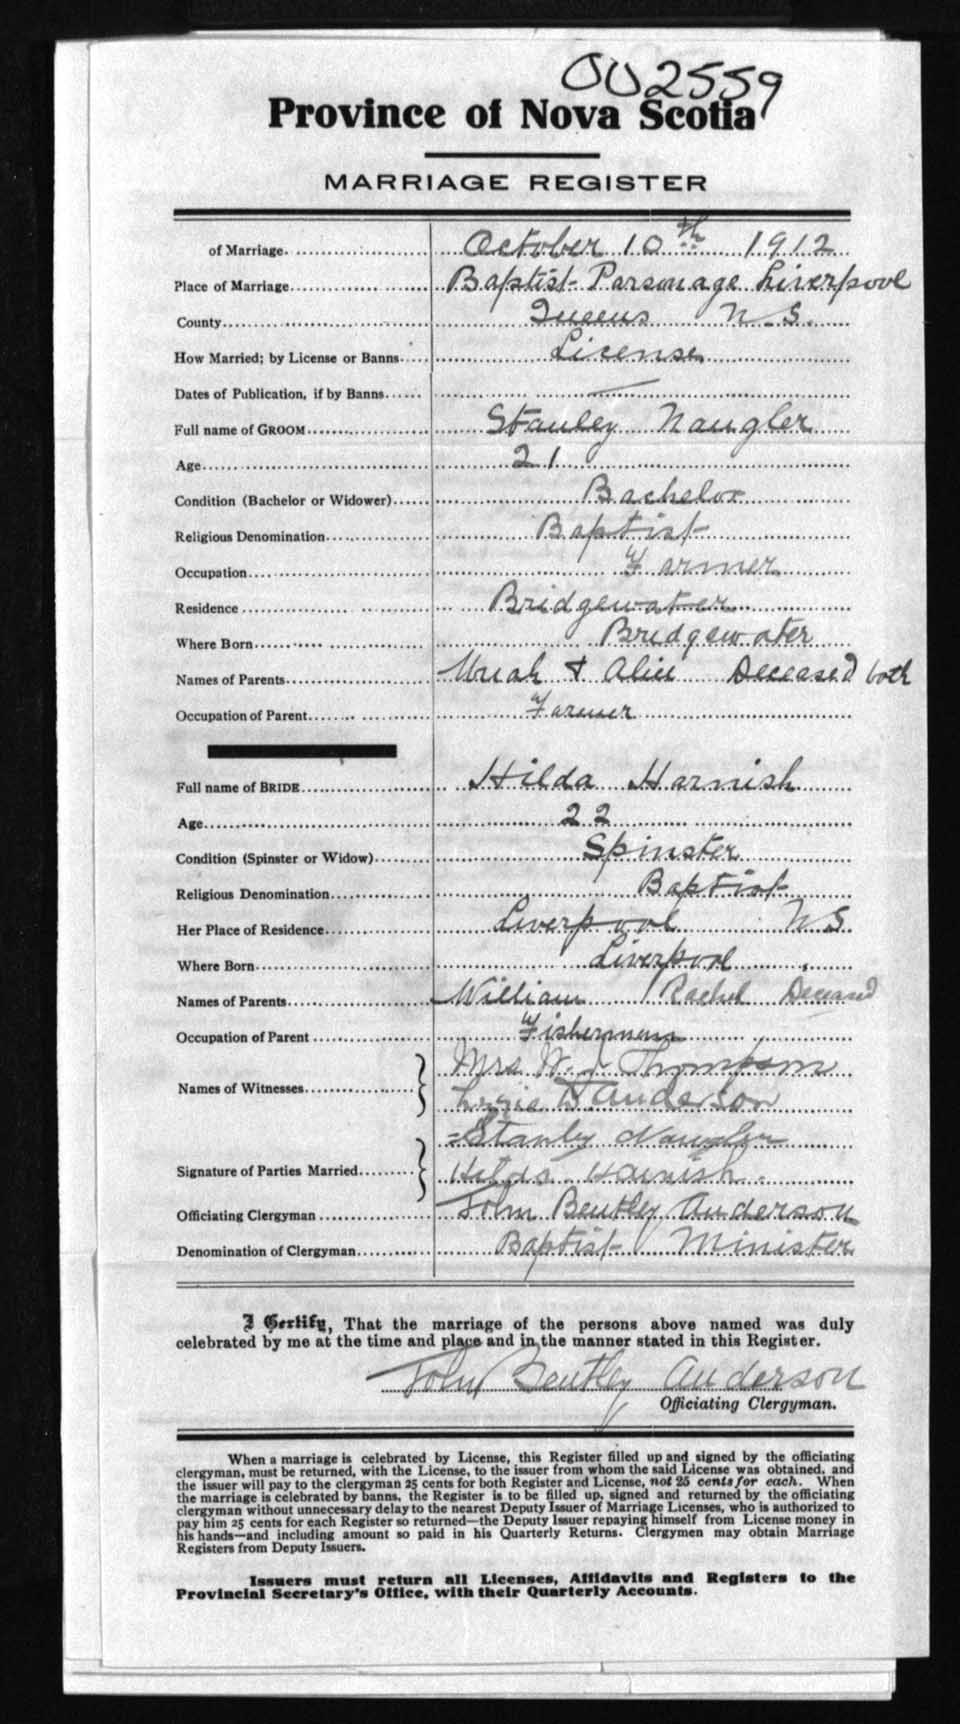 002559
Province of Nova Scotia
MARRIAGE REGISTER
of Marriage October 10th 1912
Place of Marriage Baptist Parsonage Liverpool
County Queens N.S.
How Married; by License or Banns License
Dates of Publication, if by Banns —
Full name of GROOM Stanley Naugler
Age 21
Condition (Bachelor or Widower) Bachelor
Religious Denomination Baptist
Occupation Farmer
Residence Bridgewater
Where Born Bridgewater
Names of Parents Uriah & Alice Deceased both
Occupation of Parent Farmer
Full name of BRIDE Hilda Harnish
Age 22
Condition (Spinster or Widow) Spinster
Religious Denomination Baptist
Her Place of Residence Liverpool N S.
Where Born Liverpool
Names of Parents William Rachel Deceased
Occupation of Parent Fisherman
Names of Witnesses Mrs W. J. Thompson
Lizzie D. Anderson
Signature of Parties Married Stanley Naugler
Hilda Harnish.
Officiating Clergyman John Bentley Anderson
Denomination of Clergyman Baptist Minister
I Certify, That the marriage of the persons above named was duly
celebrated by me at the time and place and in the manner stated in this Register.
John Bentley Anderson
Officiating Clergyman.
When a marriage is celebrated by License, this Register filled up and signed by the officiating
clergyman, must be returned, with the License, to the issuer from whom the said License was obtained, and
the issuer will pay to the clergyman 25 cents for both Register and License, not 25 cents for each. When
the marriage is celebrated by banns, the Register is to be filled up, signed and returned by the officiating
clergyman without unnecessary delay to the nearest Deputy Issuer of Marriage Licenses, who is authorized to
pay him 25 cents for each Register so returned—the Deputy Issuer repaying himself from License money in
his hands—and including amount so paid in his Quarterly Returns. Clergymen may obtain Marriage
Registers from Deputy Issuers.
Issuers must return all Licenses, Affidavits and Registers to the
Provincial Secretary's Office, with their Quarterly Accounts.